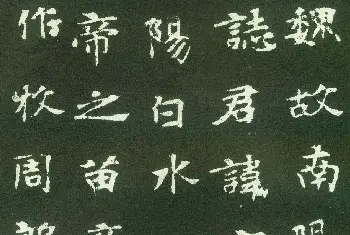 魏故南
誌君諱
陽白水
帝之苗
作牧周